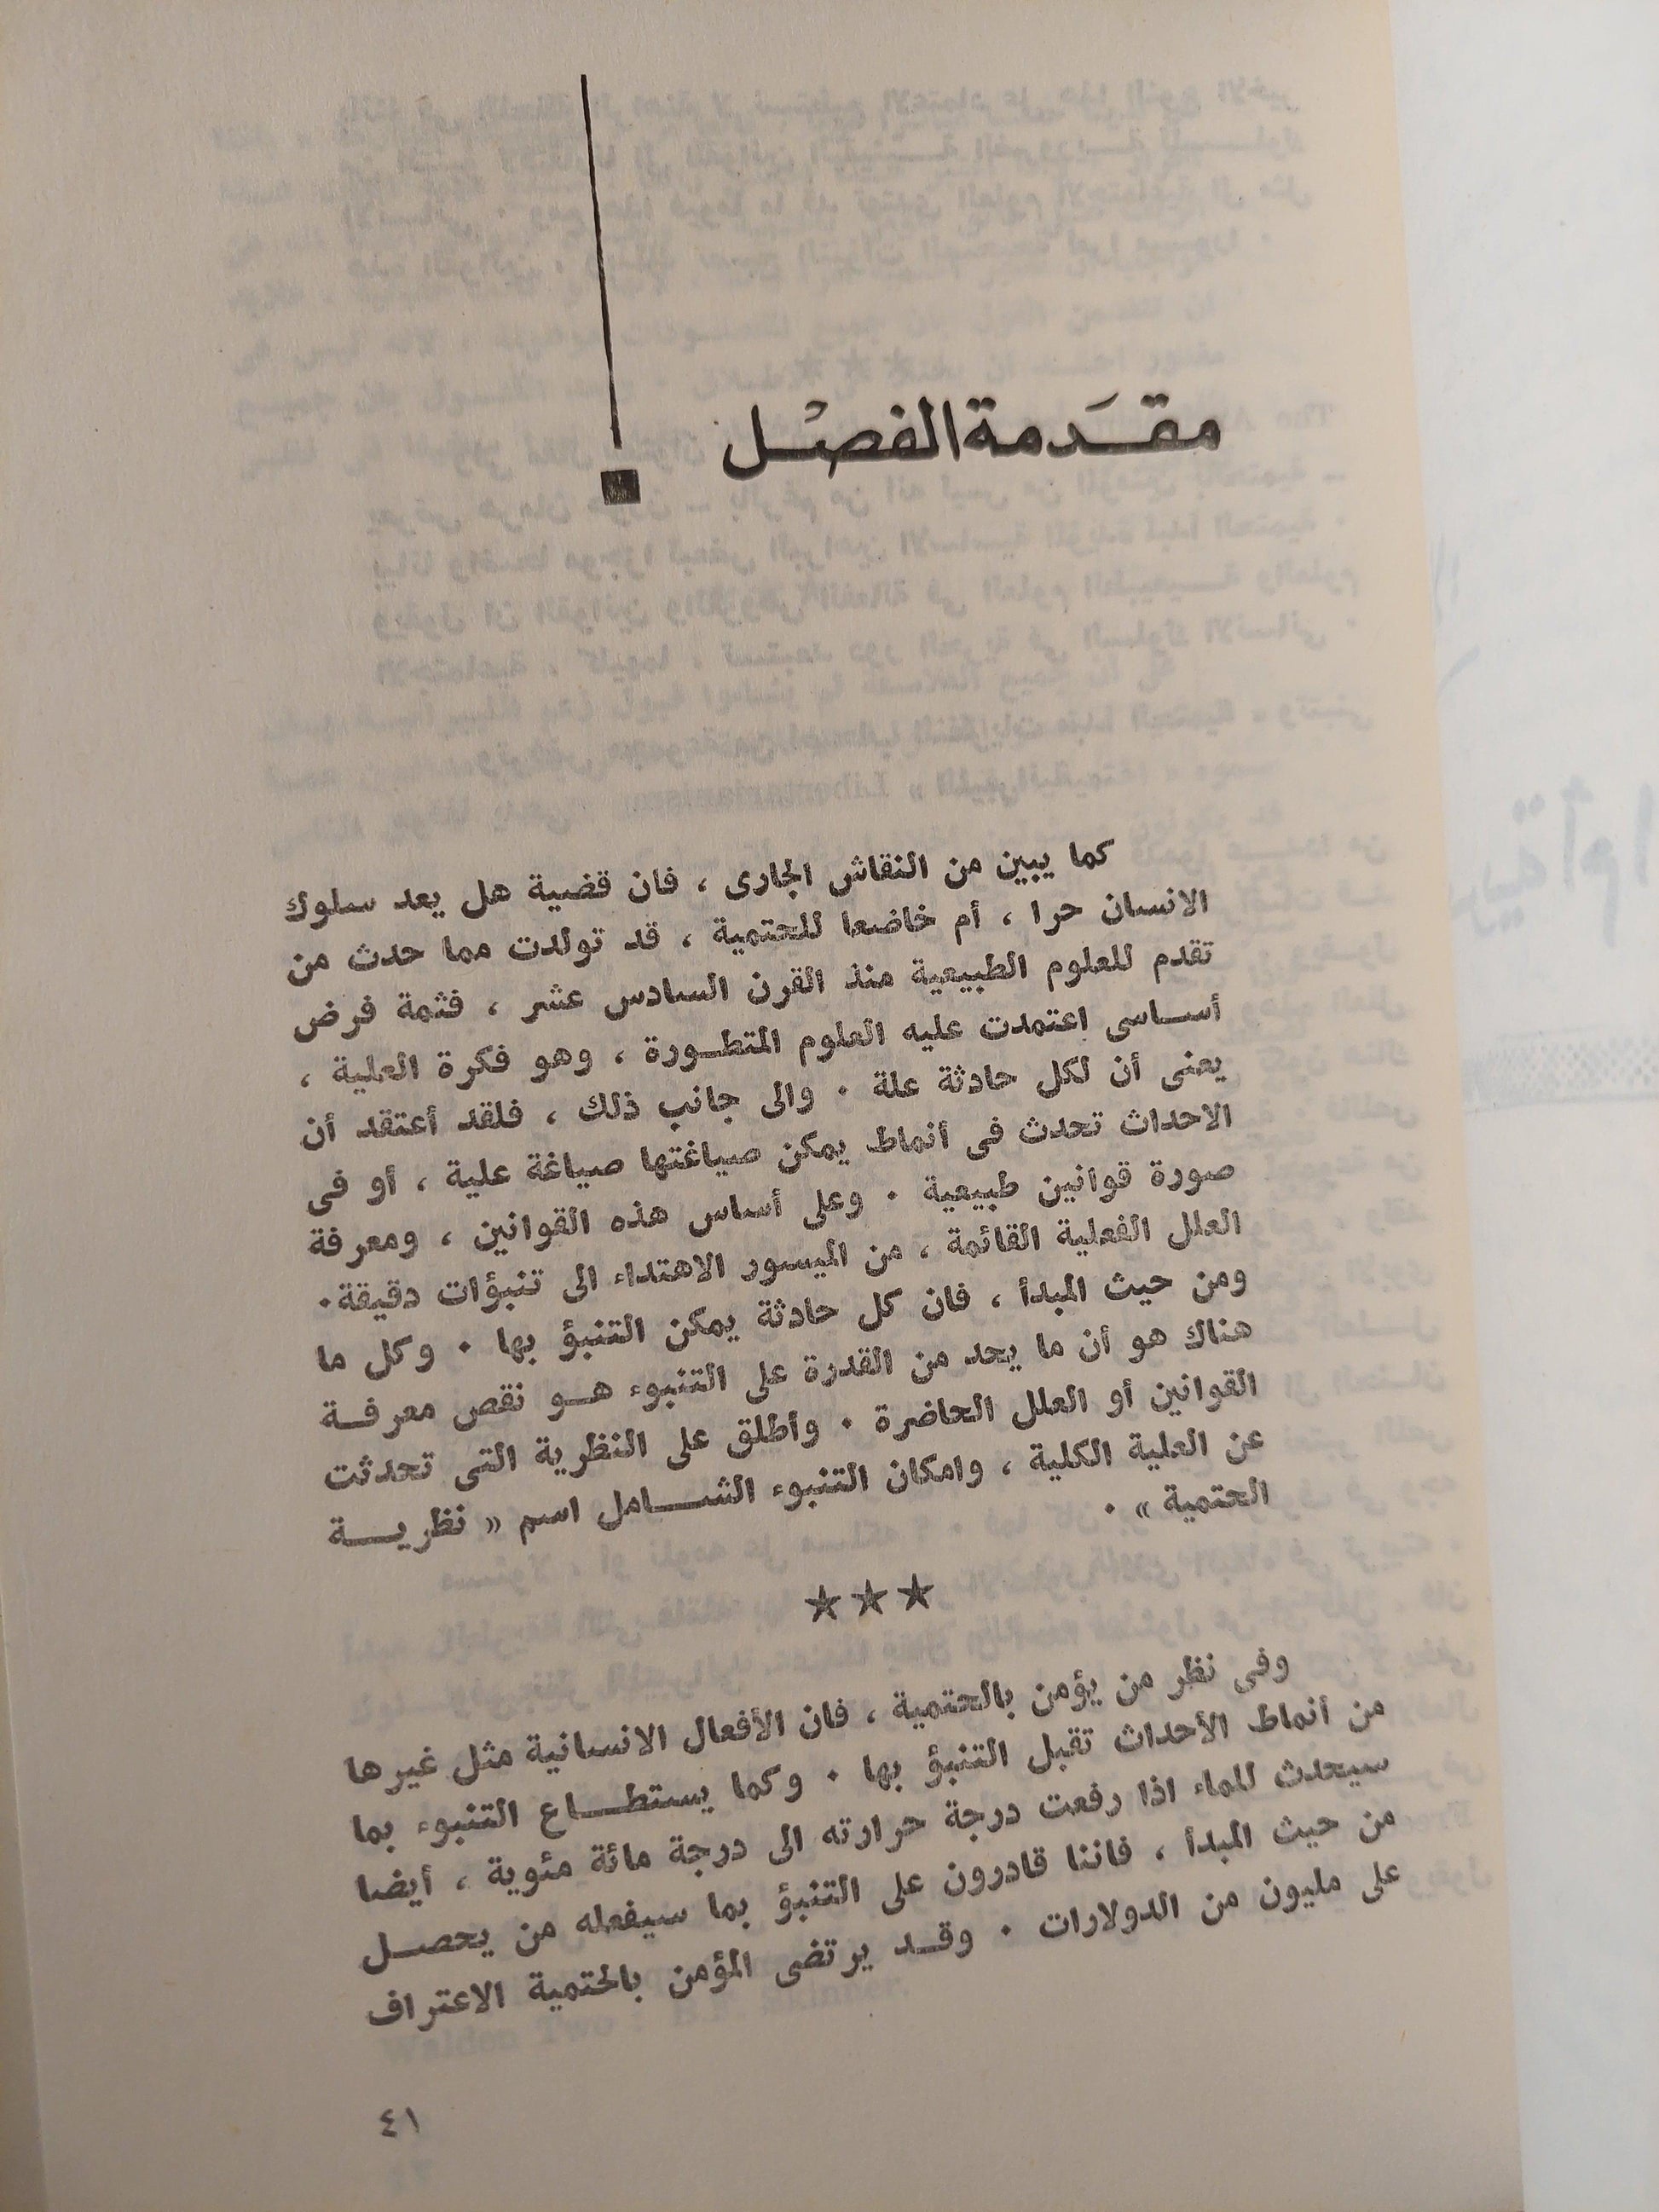 مقدمة الفصل
كما يبين من النقاش الجارى ، فان قضية هل يعد سلوك
الانسان حرا ، أم خاضعا للحتمية ، قد تولدت مما حدث من
تقدم للعلوم الطبيعية منذ القرن السادس عشر ، فثمة فرض
أساسى اعتمدت عليه العلوم المتطورة ، وهو فكرة العلية ،
يعنى أن لكل حادثة علة . والى جانب ذلك ، فلقد أعتقد أن
الاحداث تحدث فى أنماط يمكن صياغتها صياغة علية ، أو فى
صورة قوانين طبيعية . وعلى أساس هذه القوانين ، ومعرفة
العلل الفعلية القائمة ، من الميسور الاهتداء الى تنبؤات دقيقة .
ومن حيث المبدأ ، فان كل حادثة يمكن التنبؤ بها . وكل ما
هناك هو أن ما يحد من القدرة على التنبوء هو نقص معرفة
القوانين أو العلل الحاضرة . وأطلق على النظرية التى تحدثت
عن العلية الكلية ، وامكان التنبوء الشامل اسم « نظرية
الحتمية » .
★★★
وفى نظر من يؤمن بالحتمية ، فان الأفعال الانسانية مثل غيرها
من أنماط الأحداث تقبل التنبؤ بها . وكما يستطاع التنبوء بما
سيحدث للماء اذا رفعت درجة حرارته الى درجة مائة مئوية ، أيضا
من حيث المبدأ ، فاننا قادرون على التنبؤ بما سيفعله من يحصل
على مليون من الدولارات . وقد يرتضى المؤمن بالحتمية الاعتراف
٤١